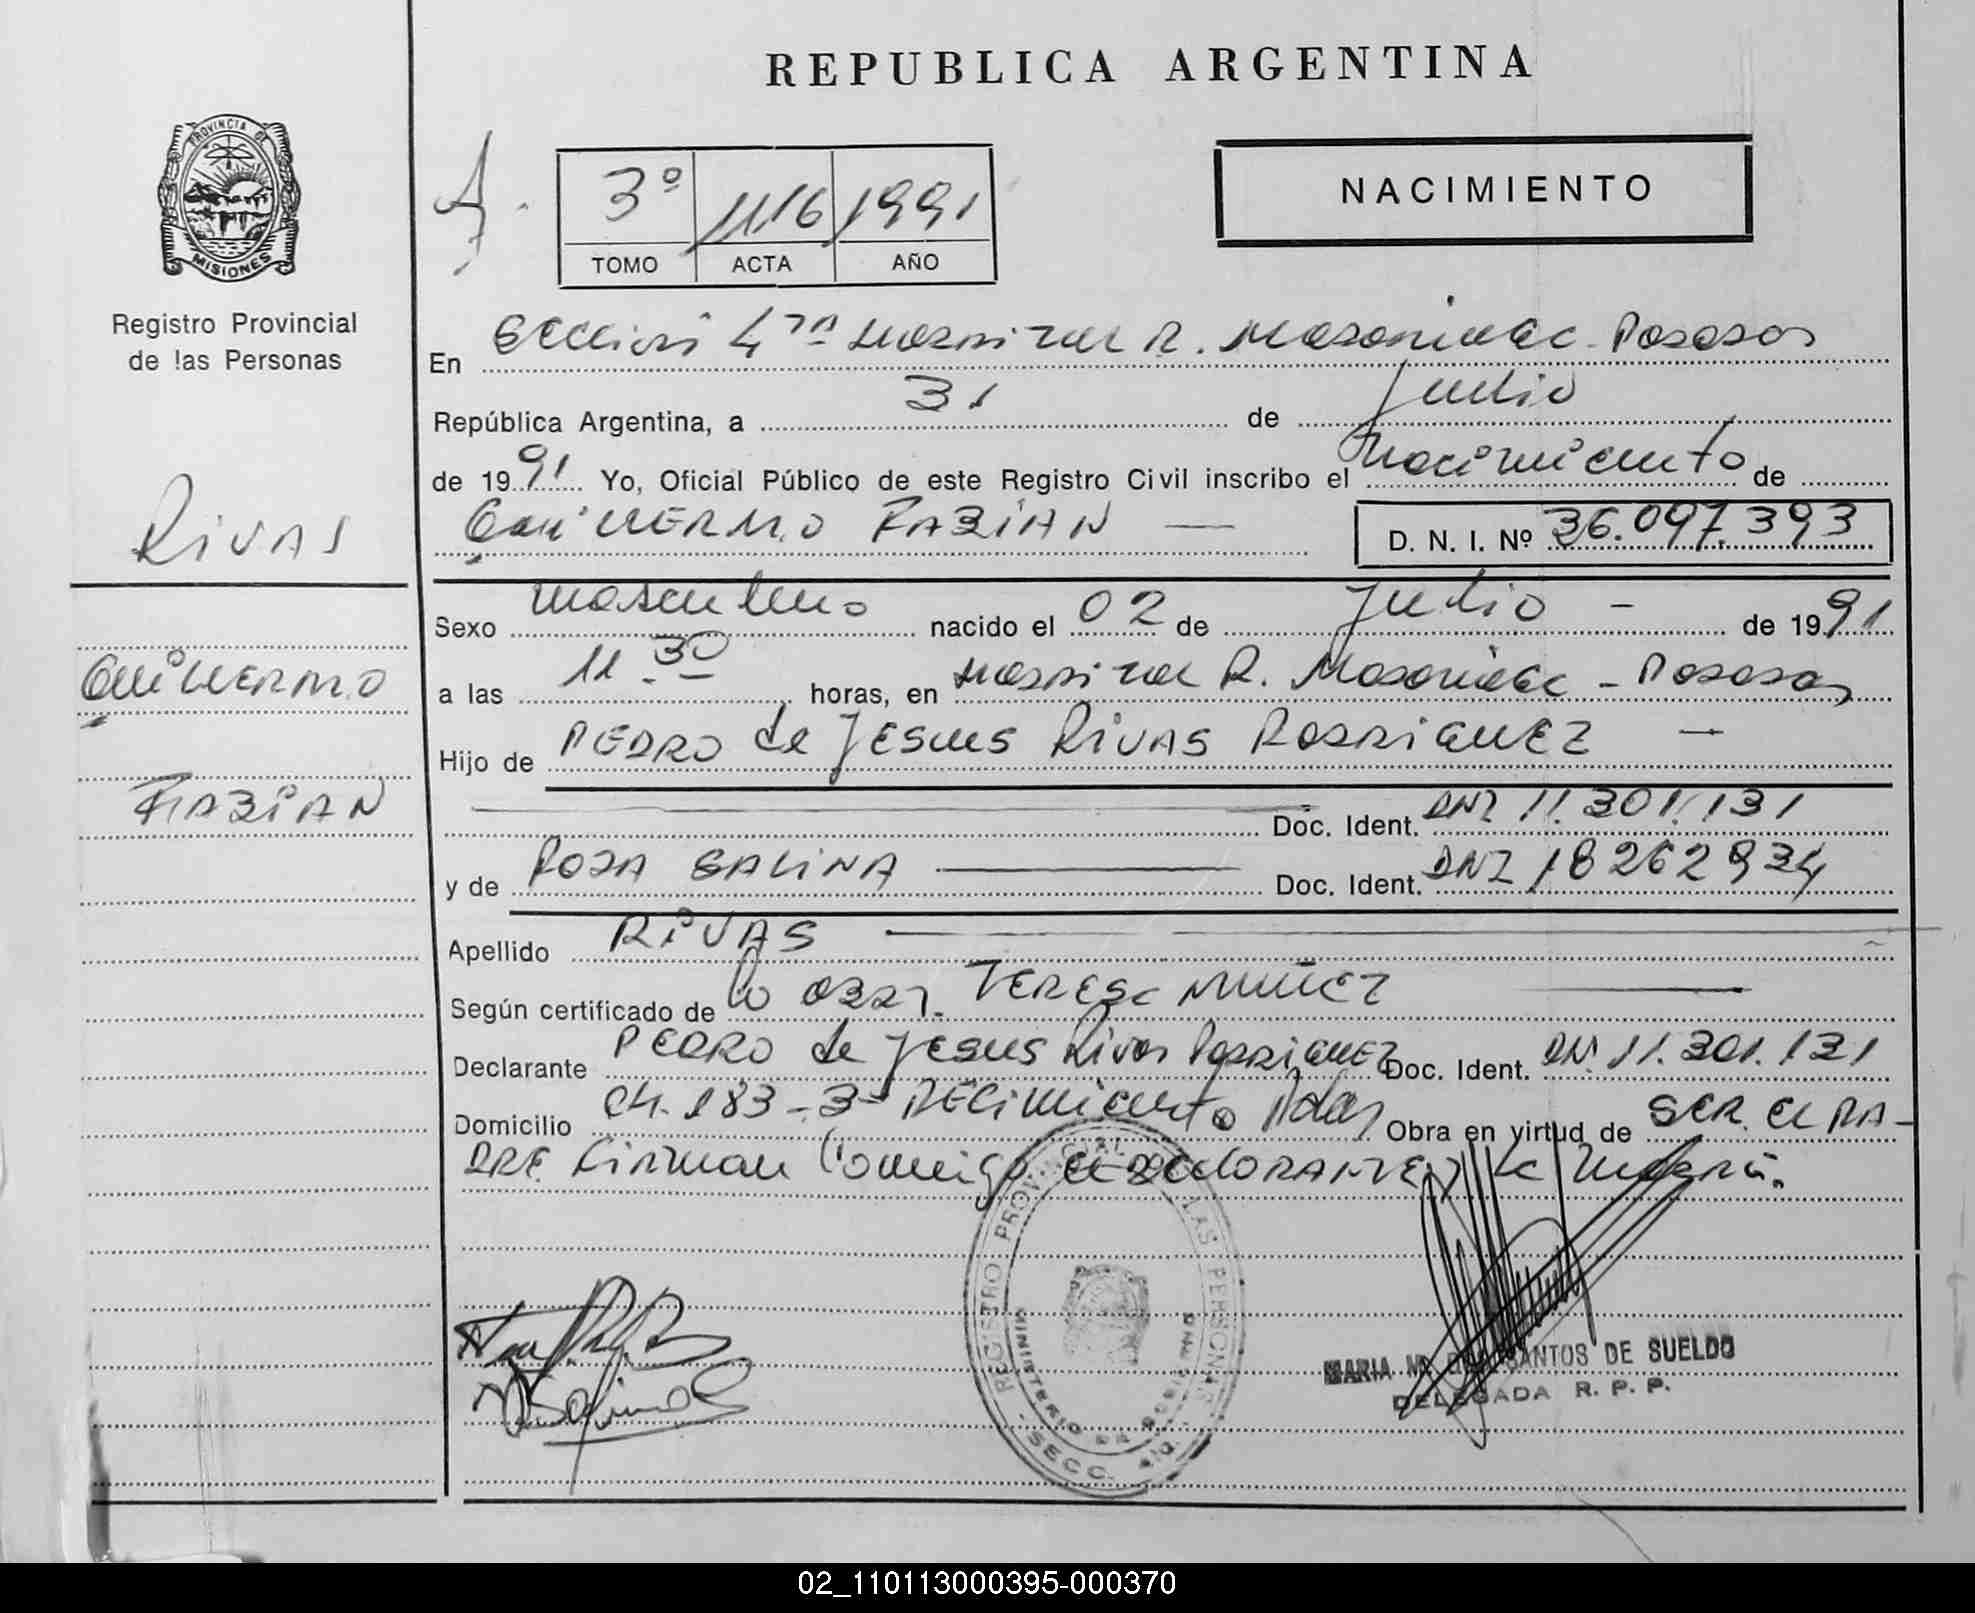 REPUBLICA ARGENTINA
PROVINCIA DE
MISIONES
Registro Provincial
de las Personas
3º 1116 1991
TOMO ACTA AÑO
NACIMIENTO
En Sección 4ta Hospital R. Madariaga - Posadas
República Argentina, a 31 de Julio
de 1991 Yo, Oficial Público de este Registro Civil inscribo el Nacimiento de
GUILLERMO FABIAN
D. N. I. Nº 36.097.393
RIVAS
GUILLERMO
FABIAN
Sexo masculino nacido el 02 de Julio - de 1991
a las 11.30 horas, en Hospital R. Madariaga - Posadas
Hijo de PEDRO de JESUS RIVAS RODRIGUEZ
Doc. Ident. DNI 11.301.131
y de ROSA GALINA Doc. Ident. DNI 18262934
Apellido RIVAS
Según certificado de la OBST. TERESA NUÑEZ
Declarante PEDRO de JESUS Rivas RODRIGUEZ Doc. Ident. DNI 11.301.131
Domicilio CH. 183 - 3- Pdas Obra en virtud de SER EL PA-
DRE Firman Conmigo el DECLARANTE y la Madre.
REGISTRO PROVINCIAL DE LAS PERSONAS
MINISTERIO DE GOBIERNO
SECC.
MARIA M. DOS SANTOS DE SUELDO
DELEGADA R. P. P.
02_110113000395-000370